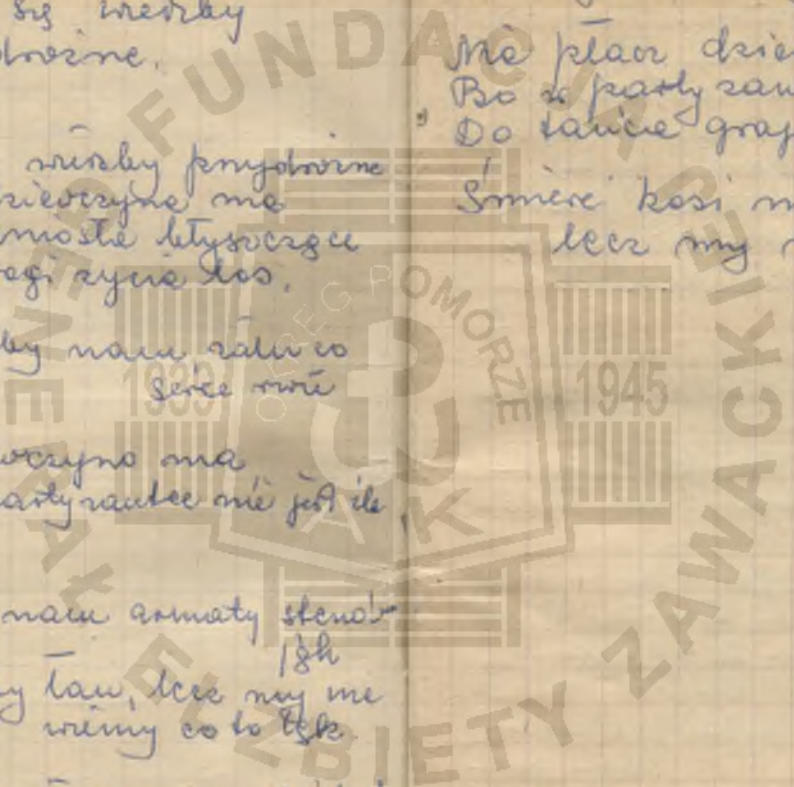 się wierzby
drożne.
wierzby przydrożne
dziewczyna ma
łyszczące
życia los.
by nam żalu co
serce rwie
wczyno ma
artyzantce nie jest źle
nam armaty stenów
jęk
łan, lecz my nie
wiemy co to lęk
Nie płacz dzie
Bo w party zan
Do tańca graj
Śmierć kosi
lecz my
FUNDACJA GENERAŁ ELŻBIETY ZAWACKIEJ
OKRĘG POMORZE
1939
1945
AK